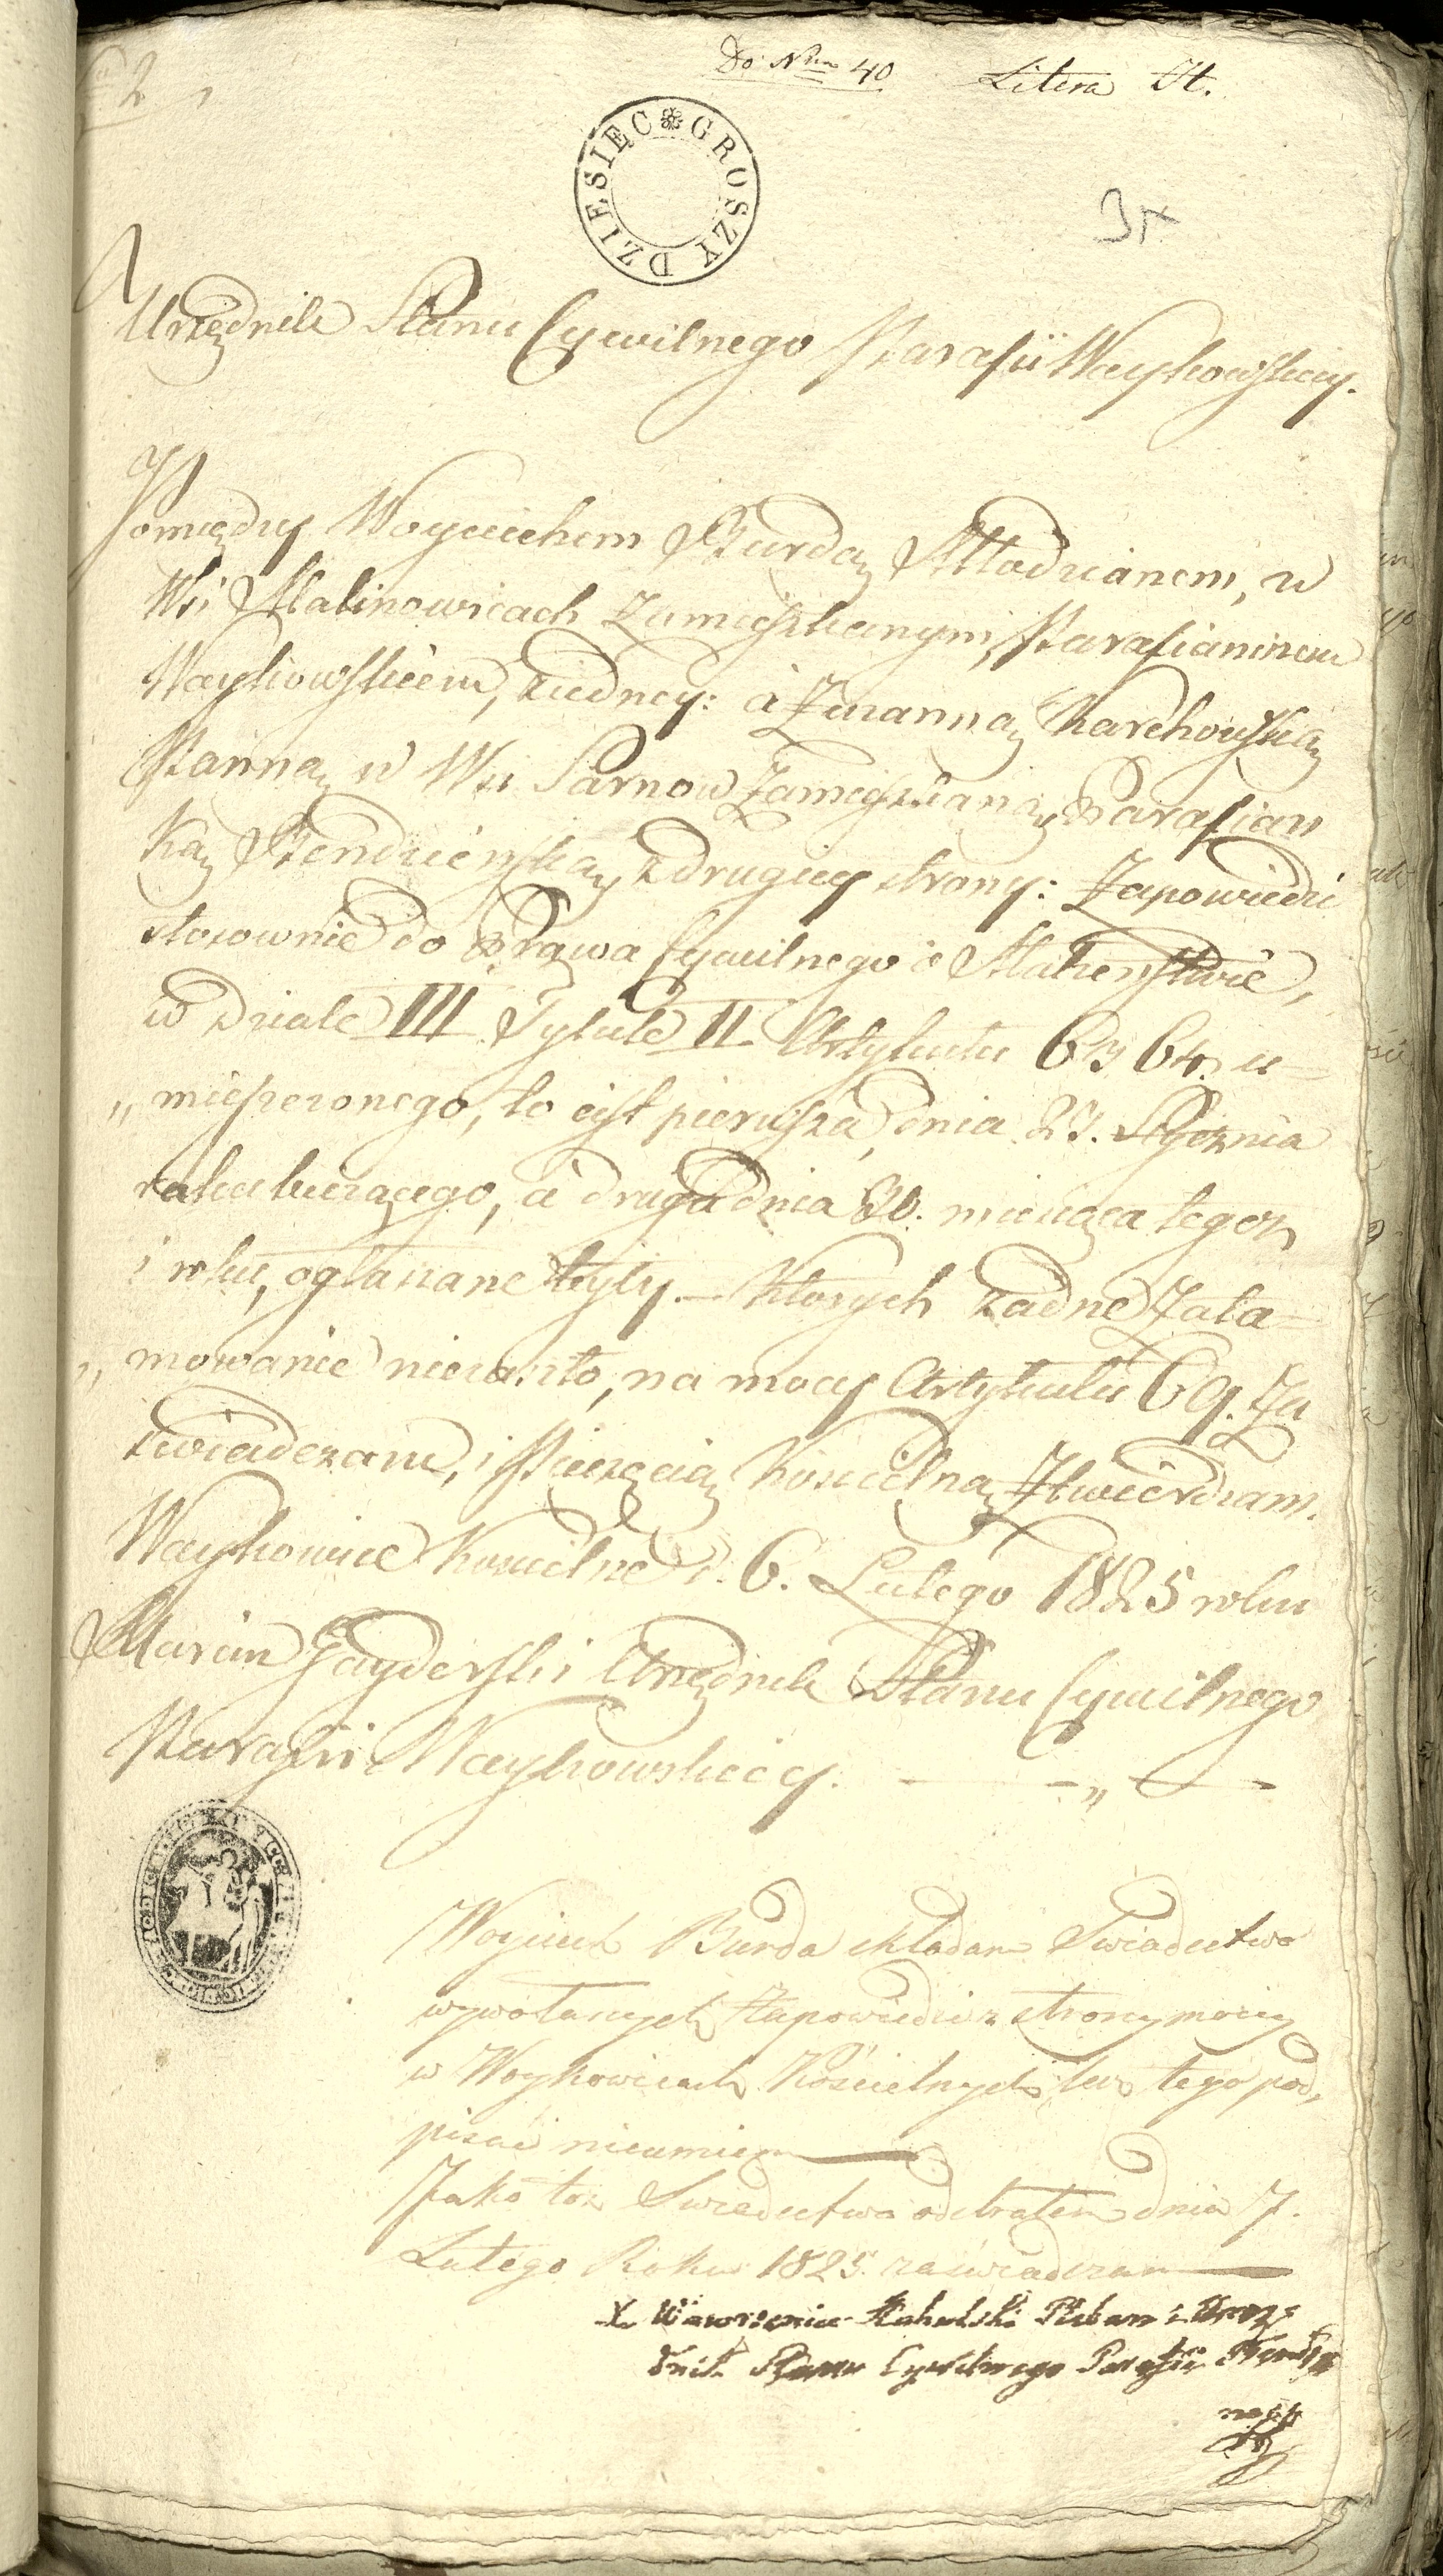 2
Do Nru 40 Litera H.
DZIESIĘC GROSZY
Urzędnik Stanu Cywilnego Parafii Woykowskiey.
Pomiędzy Woyciechem Burdą Młodzianem, w
Wsi Malinowicach zamieszkanym, Parafianinem
Woykowskiém, z iedney: à Zuzanną Karchowską
Panną w Wsi Sarnow Zamieszkaną Parafian
ką Bendzieńską z drugiey strony: Zapowiedzi
stosownie do Prawa Cywilnego o Małżenstwie,
w Dziale III Tytule II Artykułu 63 64 u-
„mieszczonego, to iest pierwsza dnia 23. Stycznia
roku bieżącego, à druga dnia 30. miesiąca tegoż
i roku, ogłaszane były. — Ktorych żadne Zata-
„mowanie niezaszło, na mocy Artykułu 69. Za
świadczam, i Pieczęcią Koscielną Ztwierdzam.
Woykowice Koscielne d. 6. Lutego 1825 roku
Marcin Gayderski Urzędnik Stanu Cywilnego
Parafii Woykowskiéy. — „ —
Woyciech Burda składam Swiadectwo
wywołanych Zapowiedzi z strony moiey
w Woykowicach Kościelnych lecz tego pod,
pisać nieumiem
Jako toż Swiadectwo odebrałem dnia 7.
Lutego Roku 1825. zaświadczam
X. Wawrzeniec Pleban i Urzę
dnik Stanu Cywilnego Parafii